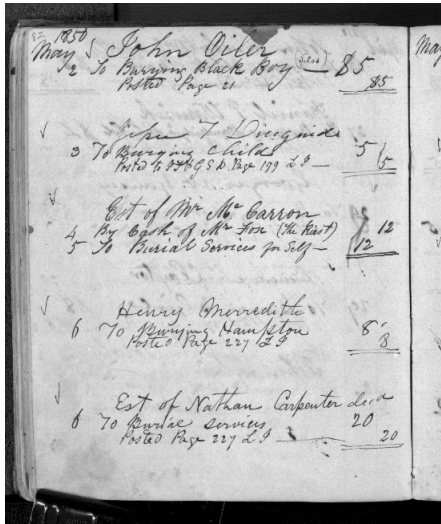 82 1850
May John Oiler
2 To Burying Black Boy — $5
Posted Page 21 $5
T Diuguid
3 To Burying Child 5
Posted to Page 199 L I — 5
Est of Mr McCarron
4 By Cash of Mr Fox (The Priest) 12
5 To Burial Services for Self — 12
Henry Merredith
6 To Burying Hampton 8
Posted Page 227 L I 8
Est of Nathan Carpenter decd
6 To Burial services 20
Posted Page 227 L I 20
May